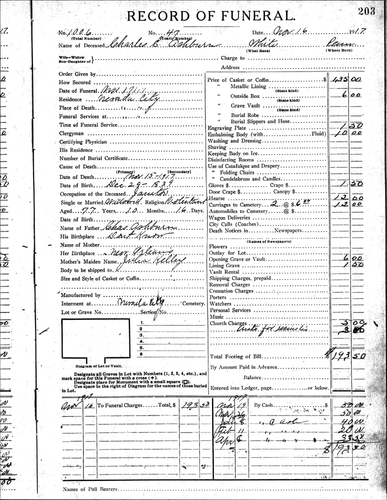 203
RECORD OF FUNERAL.
No. 1006 No. 47 Date Nov. 16 1917
(Total Number) (Yearly Number)
Name of Deceased Charles E. Ashburn White Penn
Wife—Widow Son or Daughter of Charge to
Address
Order Given by
How Secured
Date of Funeral
Residence Nevada City
Place of Death
Funeral Services at
Time of Funeral Service
Clergyman
Certifying Physician
His Residence
Number of Burial Certificate
Cause of Death
(Primary) (Secondary)
Date of Death Nov 15-1917
Date of Birth Dec 29-1839
Occupation of the Deceased Janitor
Single or Married Widower Religion
Aged 77 Years, 10 Months, 16 Days
Date of Birth
Name of Father Chas Ashburn
His Birthplace Dont Know
Name of Mother
Her Birthplace New Orleans
Mother's Maiden Name Julia Kelley
Body to be shipped to
Size and Style of Casket or Coffin
Manufactured by
Interment at Nevada City Cemetery.
Lot or Grave No. Section No.
1
2
3
4
5
6
Diagram of Lot or Vault.
Designate all Graves in Lot with Numbers (1, 2, 3, 4, etc.), and mark space for this Funeral with a cross (+).
Designate place for Monument with a small square (□).
Use space to the right of Diagram for the names of those buried in Lot.
Price of Casket or Coffin $ 135 00
" Metallic Lining
(State kind)
" Outside Box 6 00
(State kind)
" Grave Vault
(State kind)
" Burial Robe
(State kind)
" Burial Slippers and Hose
Engraving Plate 1 50
Embalming Body (with Fluid) 10 00
Washing and Dressing
Shaving
Keeping Body on Ice
Disinfecting Rooms
Use of Catafalque and Drapery
" Folding Chairs
" Candelabrum and Candles
Gloves $ Crape $ 1 50
Door Crape $ Canopy $
Hearse 12 00
Carriages to Cemetery 2 @ $6 00 12 00
Automobiles to Cemetery @ $
Wagon Deliveries
City Calls (Coaches)
Death Notices in Newspapers
(Names of Newspapers)
Flowers
Outlay for Lot
Opening Grave or Vault 6 00
Lining Grave 1 50
Vault Rental
Shipping Charges, prepaid
Removal Charges
Cremation Charges
Porters
Watchers
Personal Services
Music
Church Charges 5 00
3 00
Total Footing of Bill $ 193 50
By Amount Paid in Advance
Balance
Entered into Ledger, page or below.
Nov 16 To Funeral Charges, Total, $ 193 50
By Cash
$ 193 50
Names of Pall Bearers